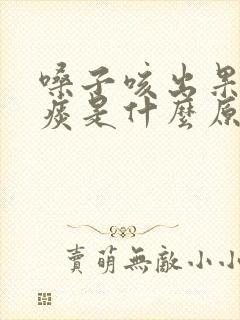 嗓子咳出果
痰是什麼原
賣萌無敵小小